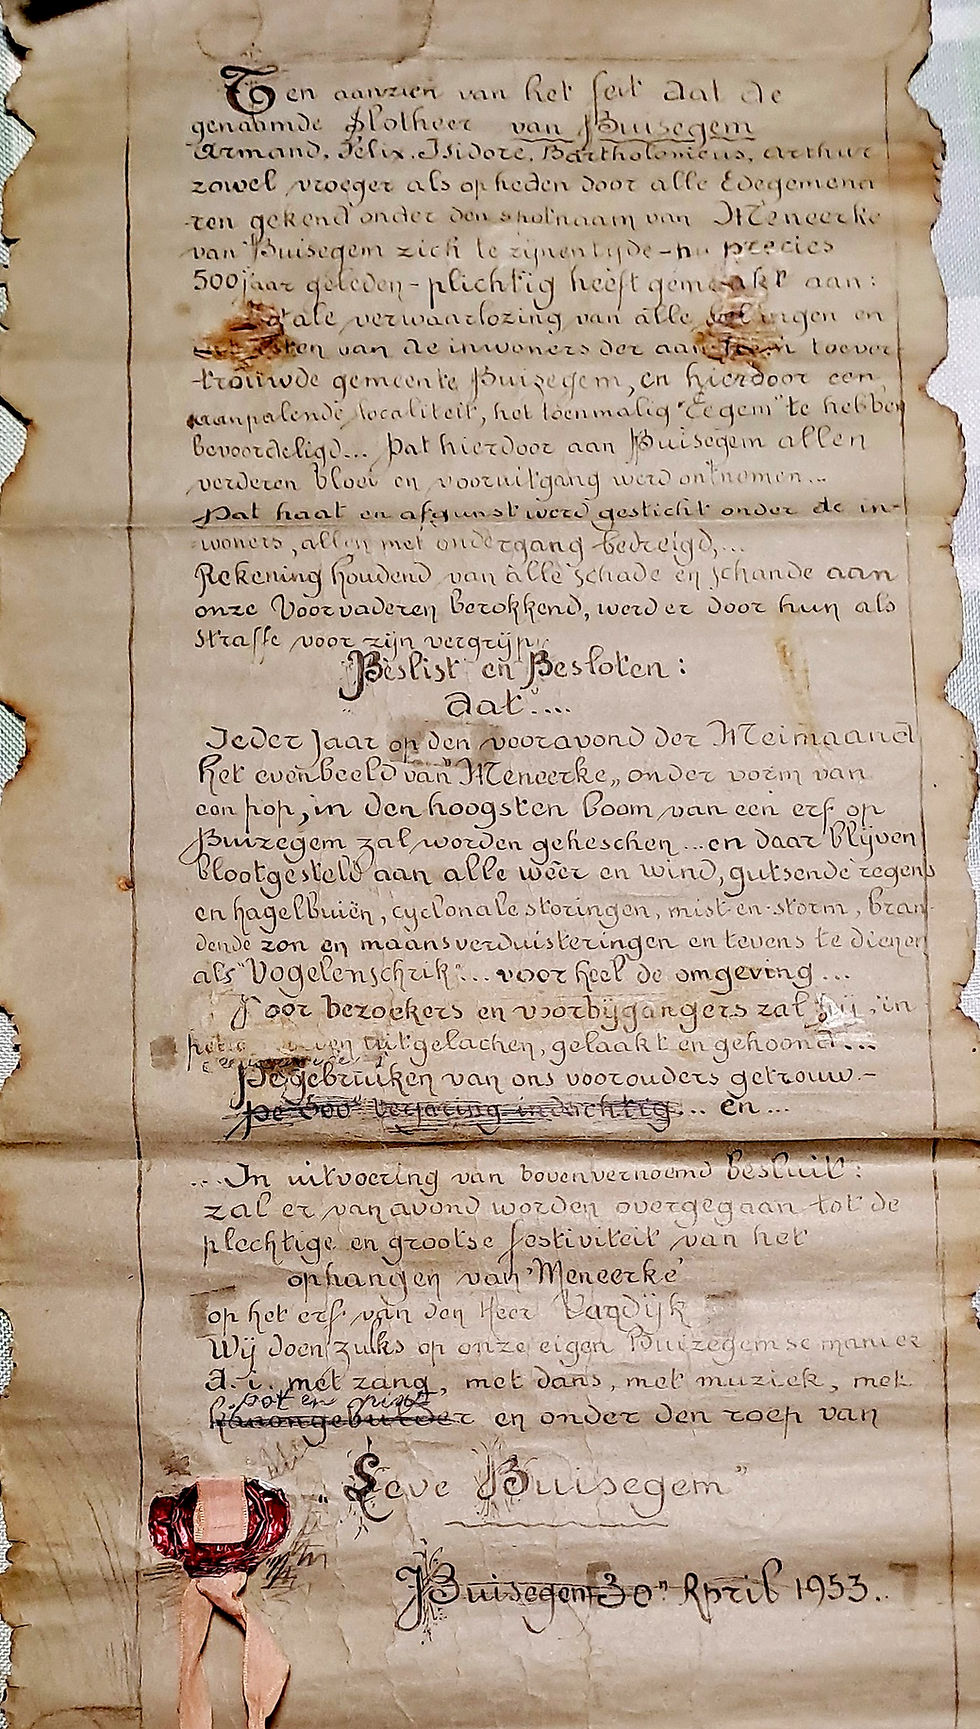 Ten aanzien van het feit dat de
genaamde Slotheer van Buisegem
Armand, Felix, Isidore, Bartholomeus, Arthur
zowel vroeger als op heden door alle Edegemena
ren gekend onder den spotnaam van Meneerke
van Buisegem zich te zijnentijde - nu precies
500 jaar geleden - plichtig heeft gemaakt aan:
verwaarlozing van alle en
van de inwoners der aan hem toever
trouwde gemeente Buizegem, en hierdoor een
aanpalende localiteit, het toenmalig "Eegem" te hebben
bevoordeligd... Dat hierdoor aan Buisegem allen
verderen bloei en vooruitgang werd ontnomen...
Dat haat en afgunst werd gesticht onder de in-
woners, allen met ondergang bedreigd,...
Rekening houdend van alle schade en schande aan
onze Voorvaderen berokkend, werd er door hun als
straffe voor zijn vergrijp
Beslist en Besloten:
dat....
Ieder Jaar op den vooravond der Meimaand
het evenbeeld van "Meneerke" onder vorm van
een pop, in den hoogsten boom van een erf op
Buizegem zal worden geheschen... en daar blijven
blootgesteld aan alle weer en wind, gutsende regens
en hagelbuien, cyclonale storingen, mist en storm, bran
dende zon en maansverduisteringen en tevens te dienen
als "Vogelenschrik"... voor heel de omgeving...
Door bezoekers en voorbijgangers zal hij, in
uitgelachen, gelaakt en gehoond...
De gebruiken van ons voorouders getrouw.-
De 500e verjaring indachtig... en...
...In uitvoering van bovenvernoemd besluit:
zal er vanavond worden overgegaan tot de
plechtige en grootse festiviteit van het
ophangen van 'Meneerke'
op het erf van den Heer Vandijk
Wij doen zulks op onze eigen Buizegemse manier
d.i. met zang, met dans, met muziek, met
pot en pint
kanongebulder en onder den roep van
"Leve Buisegem"
Buisegem 30n April 1953..